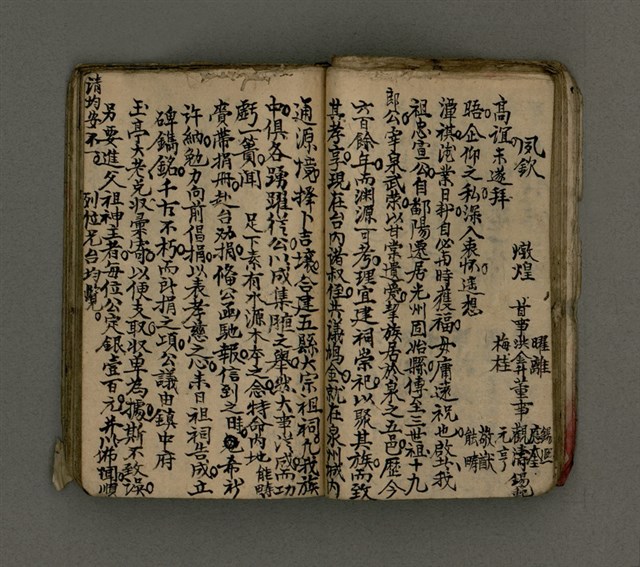 夙欽
高誼未遂拜
晤企仰之私深入衷怀遙想
潭祺
祖忠宣公自鄱陽遷居光州固始縣傳至三世祖十九
郎公宰泉武榮以甘棠遺愛挈族居於泉之五邑歷今
六百餘年而淵源可考理宜建祠崇祀以聚其族而致
其孝享現在台內諸叔侄共議鳩金就在泉州城內
通源境擇卜吉壤合建五縣大宗祖祠凡我族
中俱各踴躍從公以成集腋之舉然大事將成而功
虧一簣聞 足下素有水源木本之念特命內地 能疇
賫帶捐冊赴台劝捐俻公函馳報信到之時 希祈
许納勉力向前倡捐以表孝慈之心来日祖祠告成立
碑鐫銘千古不朽而所捐之項公議由鎮中府
玉亭夫老兑收彙寄以便支取收单為據斯不致误
另要進入祖神主者每位公定銀壹百元并以佈聞順
請均安不一 列位兄台均覽